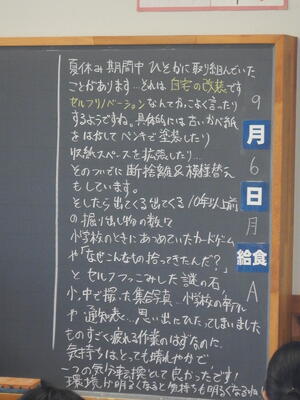 夏休み期間中 ひそかに取り組んでいた
ことがあります…。それは 自宅の改装です
セルフリノベーション なんてかっこよく言ったり
するようですね。具体的には 古いかべ紙
をはがして ペンキで塗装したり
収納スペースを拡張したり…
そのついでに断捨離&模様替え
もしています。
そしたら出てくる出てくる 10年以上前
の掘り出し物の数々
小学校のときにあつめていたカードゲーム
や「なぜこんなもの拾ってきたんだ?」
と セルフつっこみした謎の石、
小、中で撮った集合写真…小学校の
や 通知表… 思い出にひたってしまいました
ものすごく疲れる作業のはずなのに、
気持ちはとっても晴れやかで、
一つの気分転換として良かったです!
環境が明るくなると気持ちも明るくなるね
9
月
6
日
月
給食
A